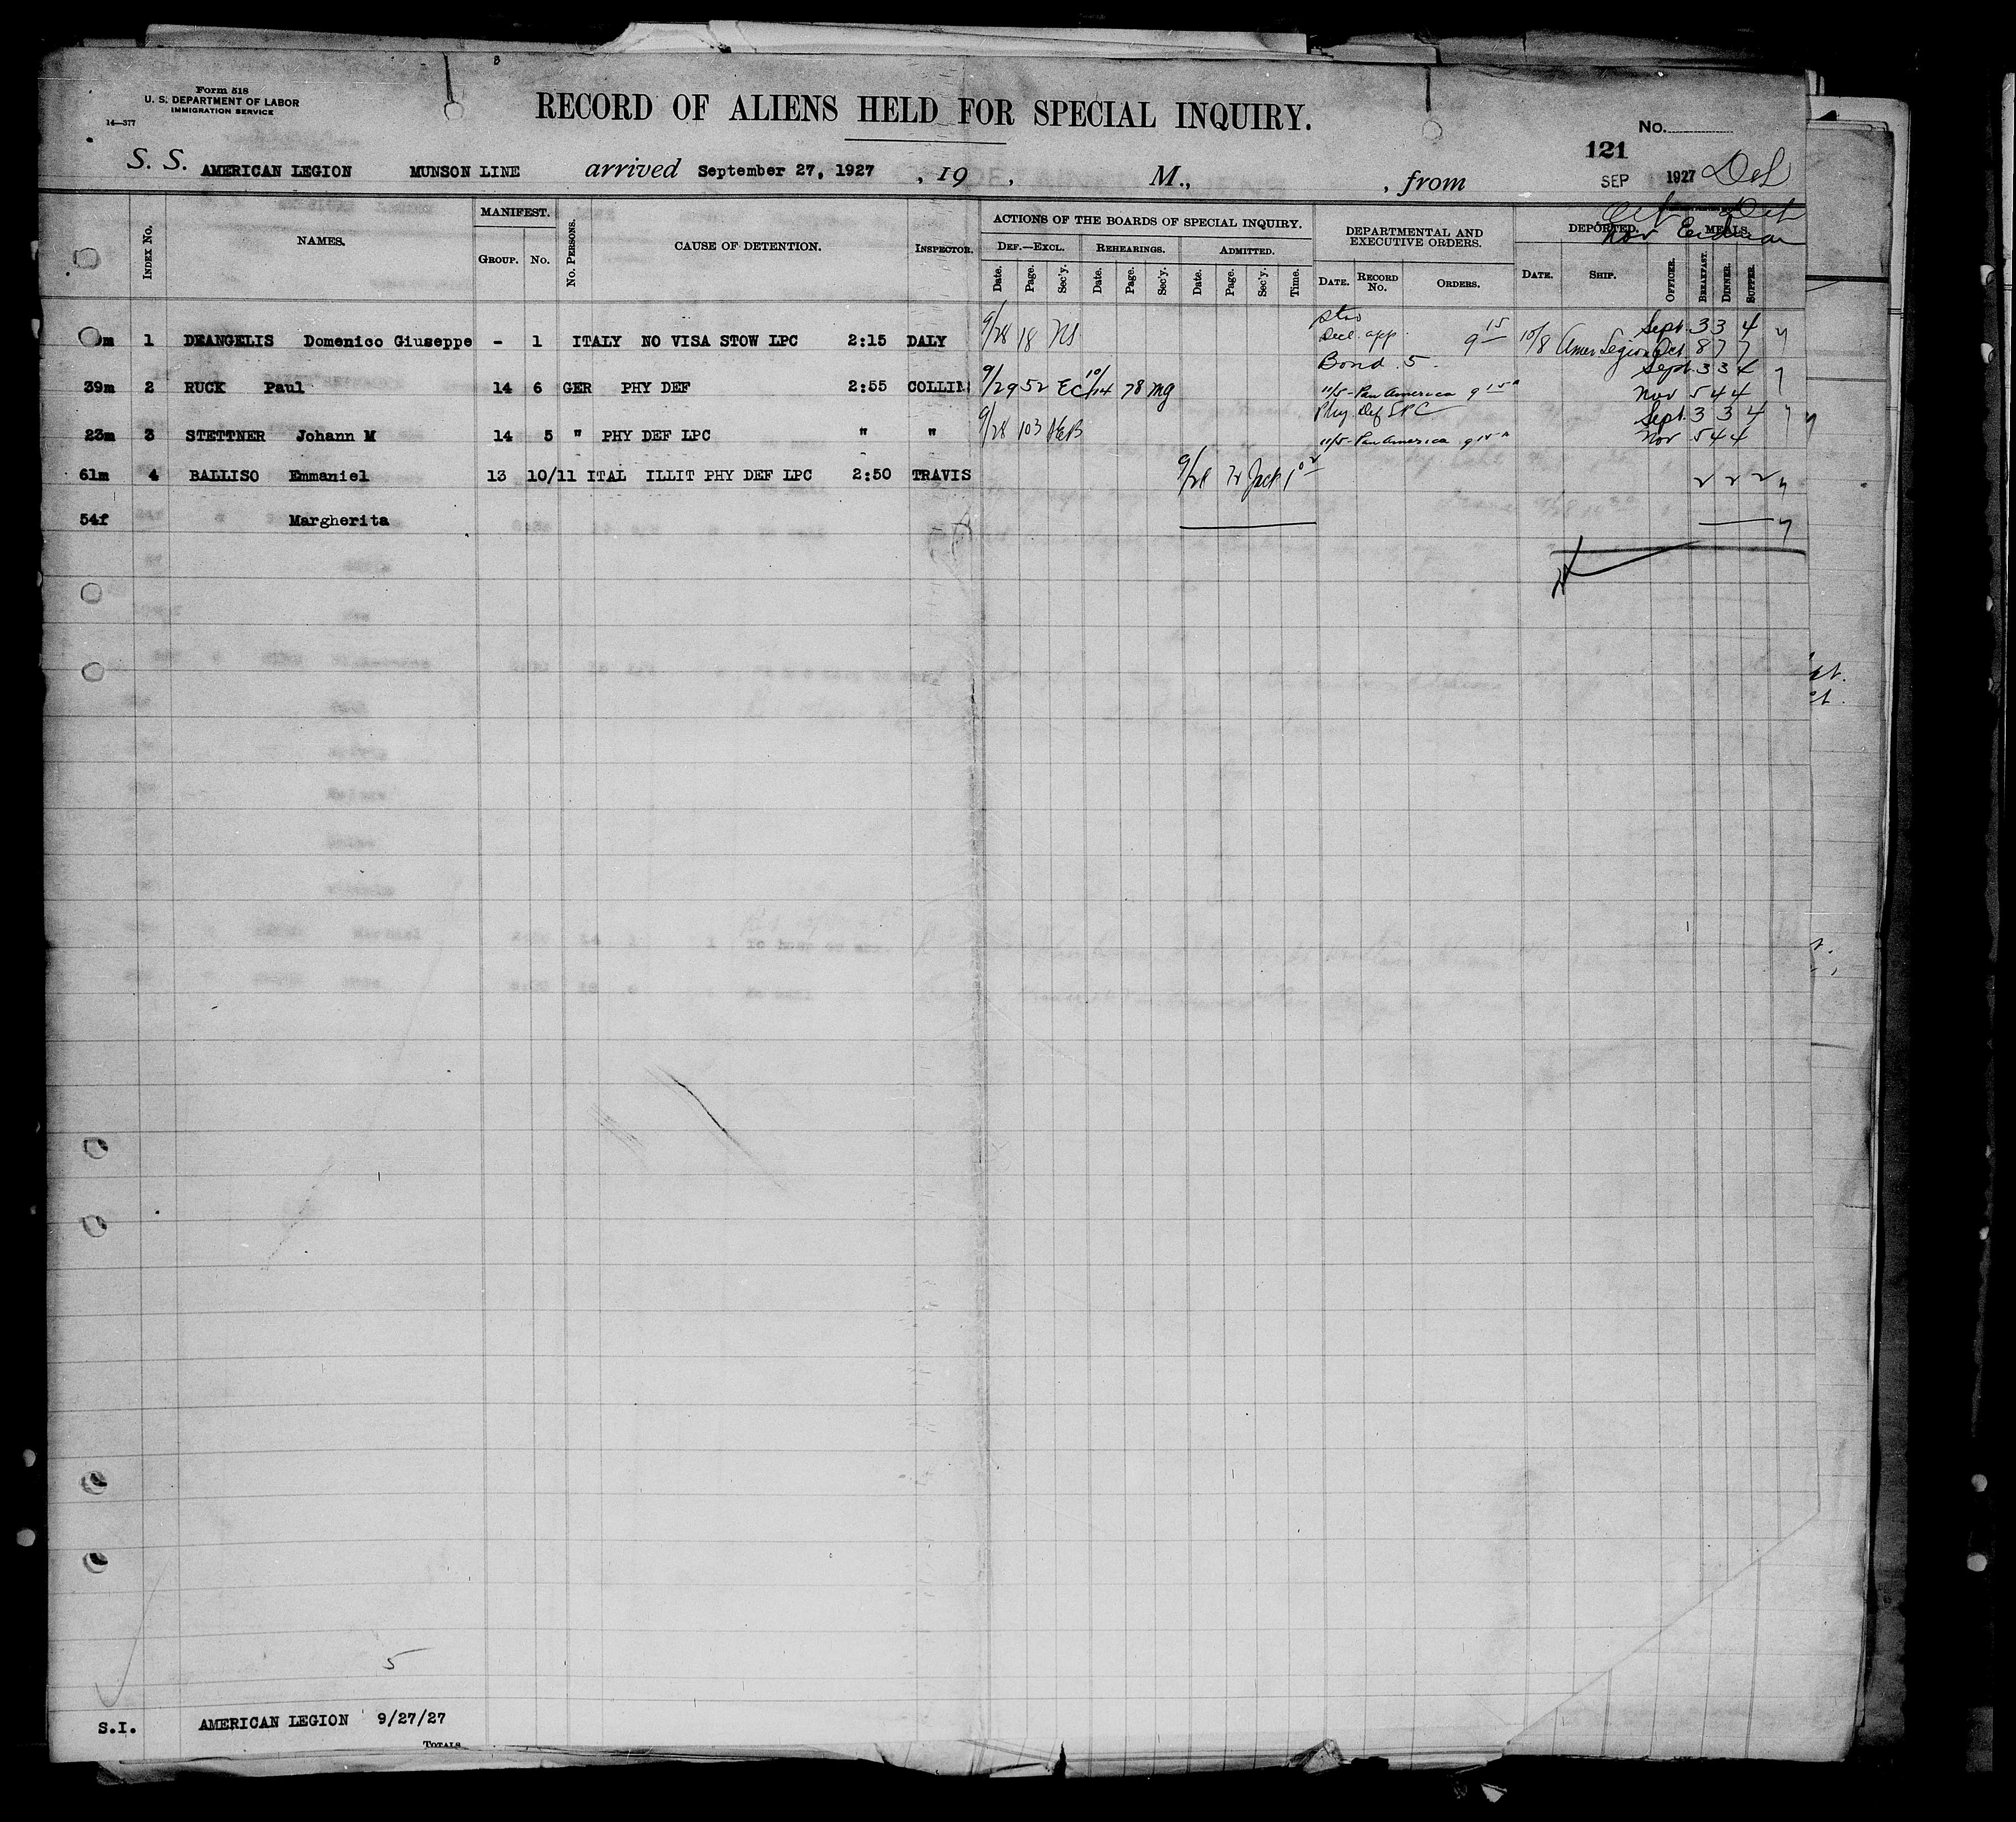 Form 518
U. S. DEPARTMENT OF LABOR
IMMIGRATION SERVICE
14—377
RECORD OF ALIENS HELD FOR SPECIAL INQUIRY.
No.
121
S. S. AMERICAN LEGION MUNSON LINE arrived September 27, 1927 , 19 , M., , from
SEP 1927
INDEX NO. NAMES. MANIFEST. GROUP. NO. NO. PERSONS. CAUSE OF DETENTION. INSPECTOR.
ACTIONS OF THE BOARDS OF SPECIAL INQUIRY.
DEF.—EXCL. REHEARINGS. ADMITTED.
Date. Page. Sec'y. Date. Page. Sec'y. Date. Page. Sec'y. Time.
DEPARTMENTAL AND EXECUTIVE ORDERS.
DATE. RECORD NO. ORDERS.
DEPORTED. MEALS.
DATE. SHIP. OFFICER. BREAKFAST. DINNER. SUPPER.
m 1 DEANGELIS Domenico Giuseppe - 1 ITALY NO VISA STOW LPC 2:15 DALY 9/28 18 NS Decl. app. 9 15 10/8 Amer Legion Sept. 3 3 4
Oct 8 7 7
Bond 5.
39m 2 RUCK Paul 14 6 GER PHY DEF 2:55 COLLIN 9/29 52 EC 10/14 78 mg 11/5 - Pan America 9 15 A Sept. 3 3 4
Nov 5 4 4
Phy. Def LPC
23m 3 STETTNER Johann M 14 5 " PHY DEF LPC " " 9/28 103 11/5 - Pan America 9 15 A Sept. 3 3 4
Nov 5 4 4
61m 4 BALLISO Emmaniel 13 10/11 ITAL ILLIT PHY DEF LPC 2:50 TRAVIS 9/28 72 Jack 2 2 2
54f Margherita
5
S.I. AMERICAN LEGION 9/27/27
TOTALS